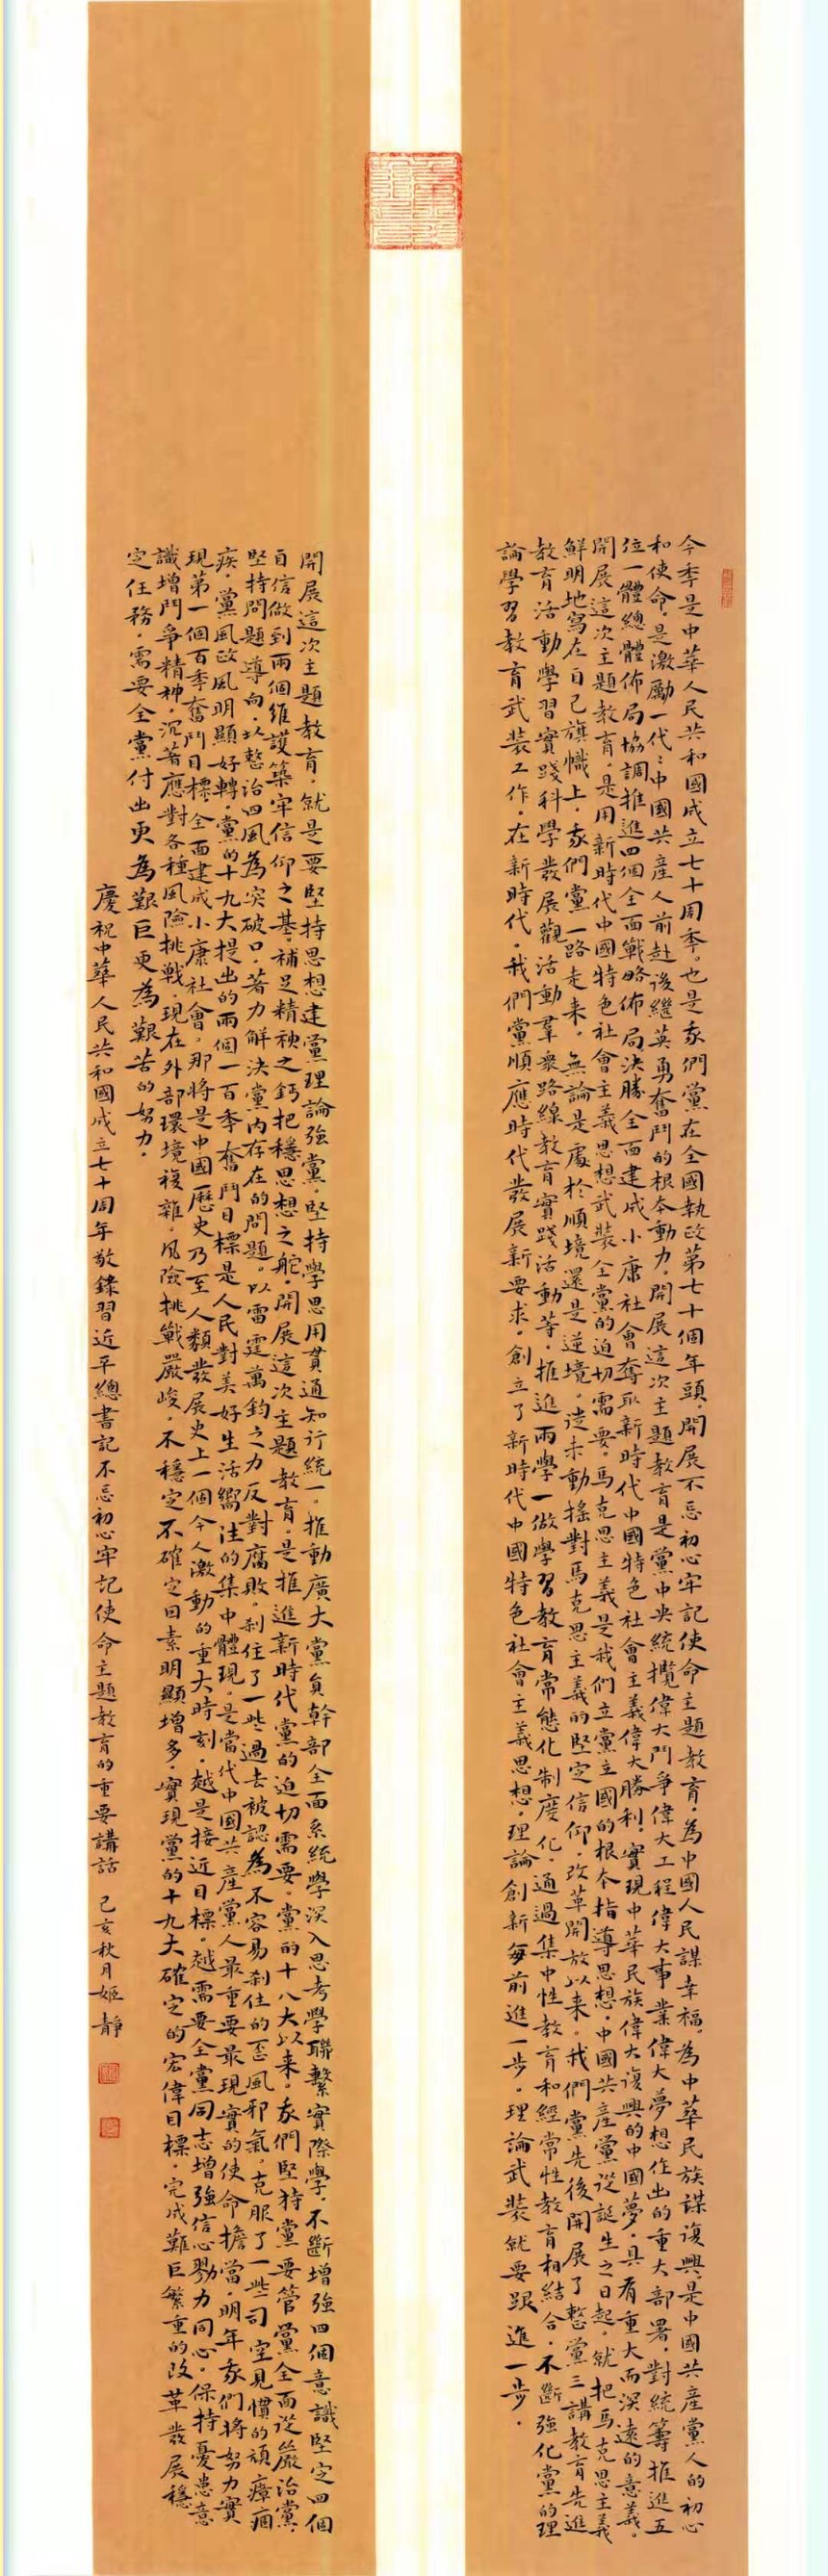 今季是中華人民共和國成立七十周季。也是我們黨在全國執政第七十個年頭。開展不忘初心牢記使命主題教育。為中國人民謀幸福。為中華民族謀復興。是中國共產黨人的初心
和使命。是激勵一代〻中國共産人前赴後繼英勇奮鬥的根本動力。開展這次主題教育是黨中央統攬偉大鬥爭偉大工程偉大事業偉大夢想作出的重大部署。對統籌推進五
位一體總體佈局協調推進四個全面戰略佈局決勝全面建成小康社會奪取新時代中國特色社會主義偉大勝利。實現中華民族偉大復興的中國夢。具有重大而深遠的意義。
開展這次主題教育。是用新時代中國特色社會主義思想武裝全黨的迫切需要。馬克思主義是我们立黨立國的根本指導思想。中國共産黨從誕生之日起。就把馬克思主義
鮮明地寫在自己旗幟上。我們黨一路走来。無論是處於順境還是逆境。從未動搖對馬克思主義的堅定信仰。改革開放以来。我們黨先後開展了整黨三講教育先進
教育活動學習實踐科學發展觀活動羣衆路線教育實踐活動等。推進兩學一做學習教育常態化制度化。通過集中性教育和經常性教育相結合。不斷強化黨的理
論學習教育武裝工作。在新時代。我們黨順應時代發展新要求。創立了新時代中國特色社會主義思想。理論創新每前進一步。理論武裝就要跟進一步。
開展這次主題教育。就是要堅持思想建黨理論強黨。堅持學思用貫通知行統一。推動廣大黨員幹部全面系統學深入思考學聯繫實際學。不斷增強四個意識堅定四個
自信做到兩個維護築牢信仰之基。補足精神之鈣把穩思想之舵。開展這次主題教育。是推進新時代黨的迫切需要。黨的十八大以来。我們堅持黨要管黨全面從嚴治黨。
堅持問題導向。以整治四風為突破口。著力解決黨內存在的問題。以雷霆萬鈞之力反對腐敗。刹住了一些過去被認為不容易刹住的歪風邪氣。克服了一些司空見慣的頑瘴痼
疾。黨風政風明顯好轉。黨的十九大提出的兩個一百季奮鬥目標是人民對美好生活嚮往的集中體現。是當代中國共産黨人最重要最現實的使命擔當。明年我們將努力實
現第一個百季奮鬥目標全面建成小康社會。那將是中國歷史乃至人類發展史上一個令人激動的重大時刻。越是接近目標。越需要全黨同志增強信心勠力同心。保持憂患意
識增鬥爭精神。沉著應對各種風險挑戰。現在外部環境複雜。風險挑戰嚴峻。不穩定不確定因素明顯增多。實現黨的十九大確定的宏偉目標。完成艱巨繁重的改革發展穩
定任務。需要全黨付出更為艱巨更為艱苦的努力。
慶祝中華人民共和國成立七十周年敬錄習近平總書記不忘初心牢記使命主題教育的重要講話 己亥秋月姬靜